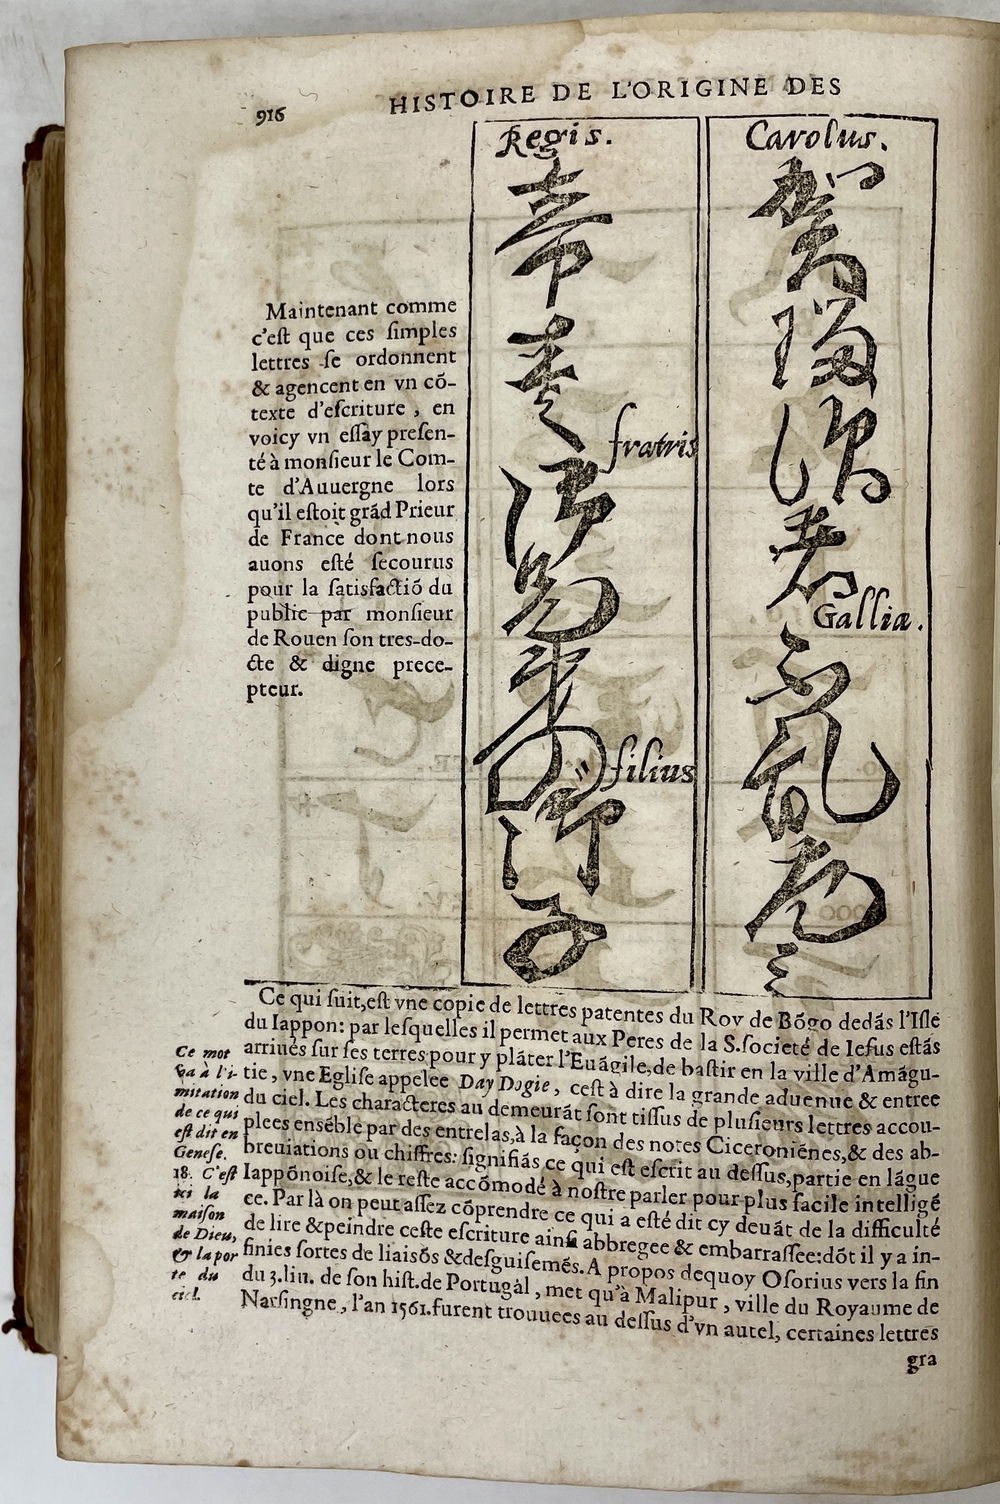 916
HISTOIRE DE L'ORIGINE DES
Carolus.
Galliæ.
Regis.
fratris
filius
御
子
Maintenant comme
c'eſt que ces ſimples
lettres ſe ordonnent
& agencent en vn cõ-
texte d'eſcriture , en
voicy vn eſſay preſen-
té à monſieur le Com-
te d'Auuergne lors
qu'il eſtoit grãd Prieur
de France dont nous
auons eſté ſecourus
pour la ſatisfactiõ du
public par monſieur
de Rouen ſon tres-do-
cte & digne prece-
pteur.
Ce qui ſuit,eſt vne copie de lettres patentes du Roy de Bõgo dedãs l'Iſle
du Iappon: par leſquelles il permet aux Peres de la S.ſocieté de Ieſus eſtãs
arriués ſur ſes terres pour y plãter l'Euãgile,de baſtir en la ville d'Amãgu-
tie, vne Egliſe appelee Day Dogie, ceſt à dire la grande aduenue & entree
du ciel. Les characteres au demeurãt ſont tiſſus de pluſieurs lettres accou-
plees enséble par des entrelas,à la façon des notes Ciceroniénes,& des ab-
breuiations ou chiffres: ſignifiãs ce qui eſt eſcrit au deſſus,partie en lãgue
Iappõnoiſe,& le reſte accõmodé à noſtre parler pour plus facile intelligé
ce. Par là on peut aſſez cõprendre ce qui a eſté dit cy deuãt de la difficulté
de lire &peindre ceſte eſcriture ainſi abbregee & embarraſſee:dõt il y a in-
finies ſortes de liaisõs &desguisemẽs. A propos dequoy Oſorius vers la fin
du 3.liu. de ſon hiſt.de Portugal , met qu'à Malipur , ville du Royaume de
Narſingne, l'an 1561.furent trouuees au deſſus d'vn autel, certaines lettres
gra
Ce mot
va à l'i-
mitation
de ce qui
eſt dit en
Geneſe.
18. C'eſt
ici la
maiſon
de Dieu,
& la por
te du
ciel.